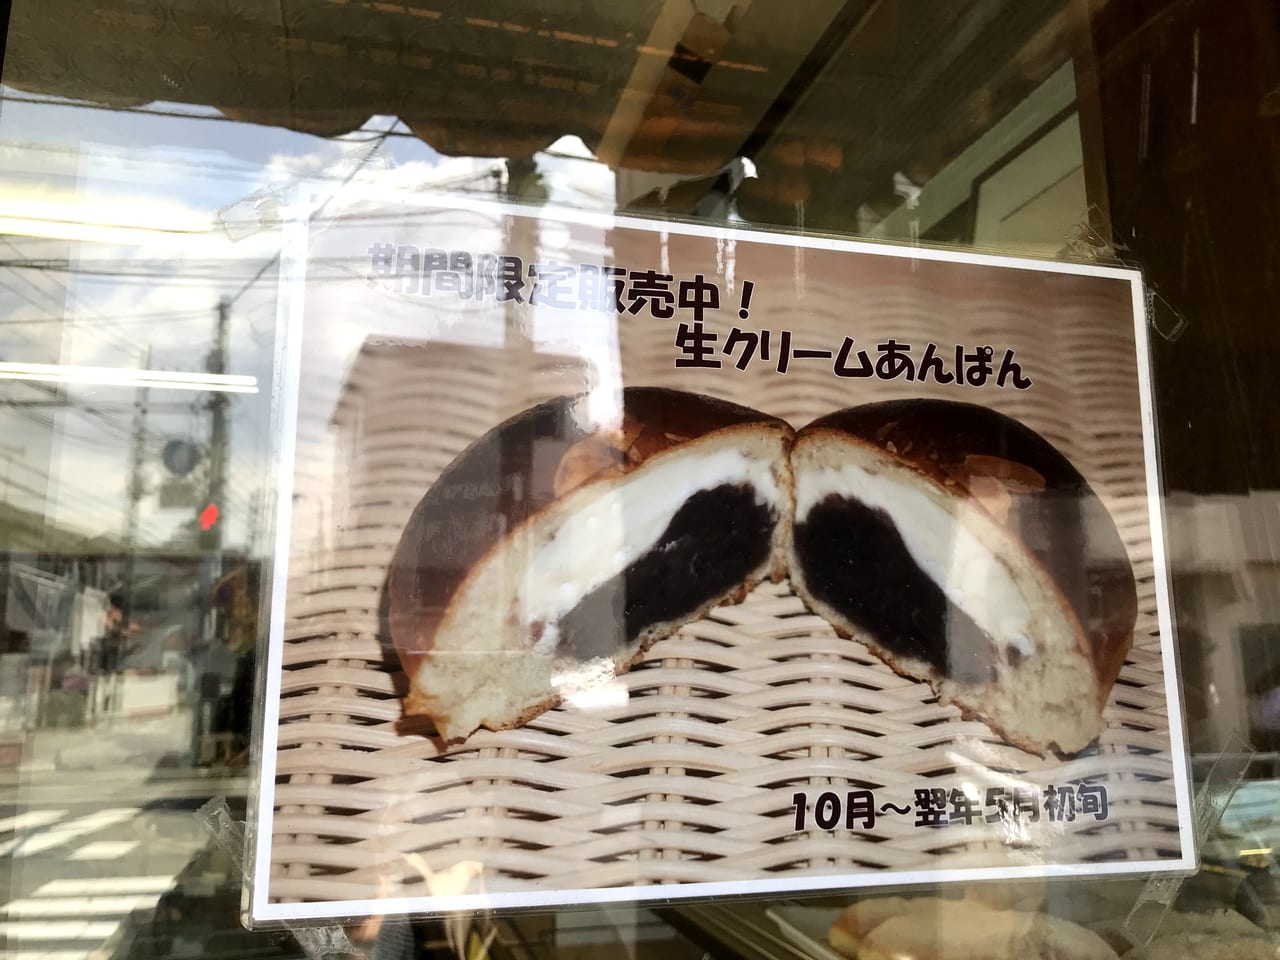 期間限定販売中！
生クリームあんぱん
10月～翌年5月初旬